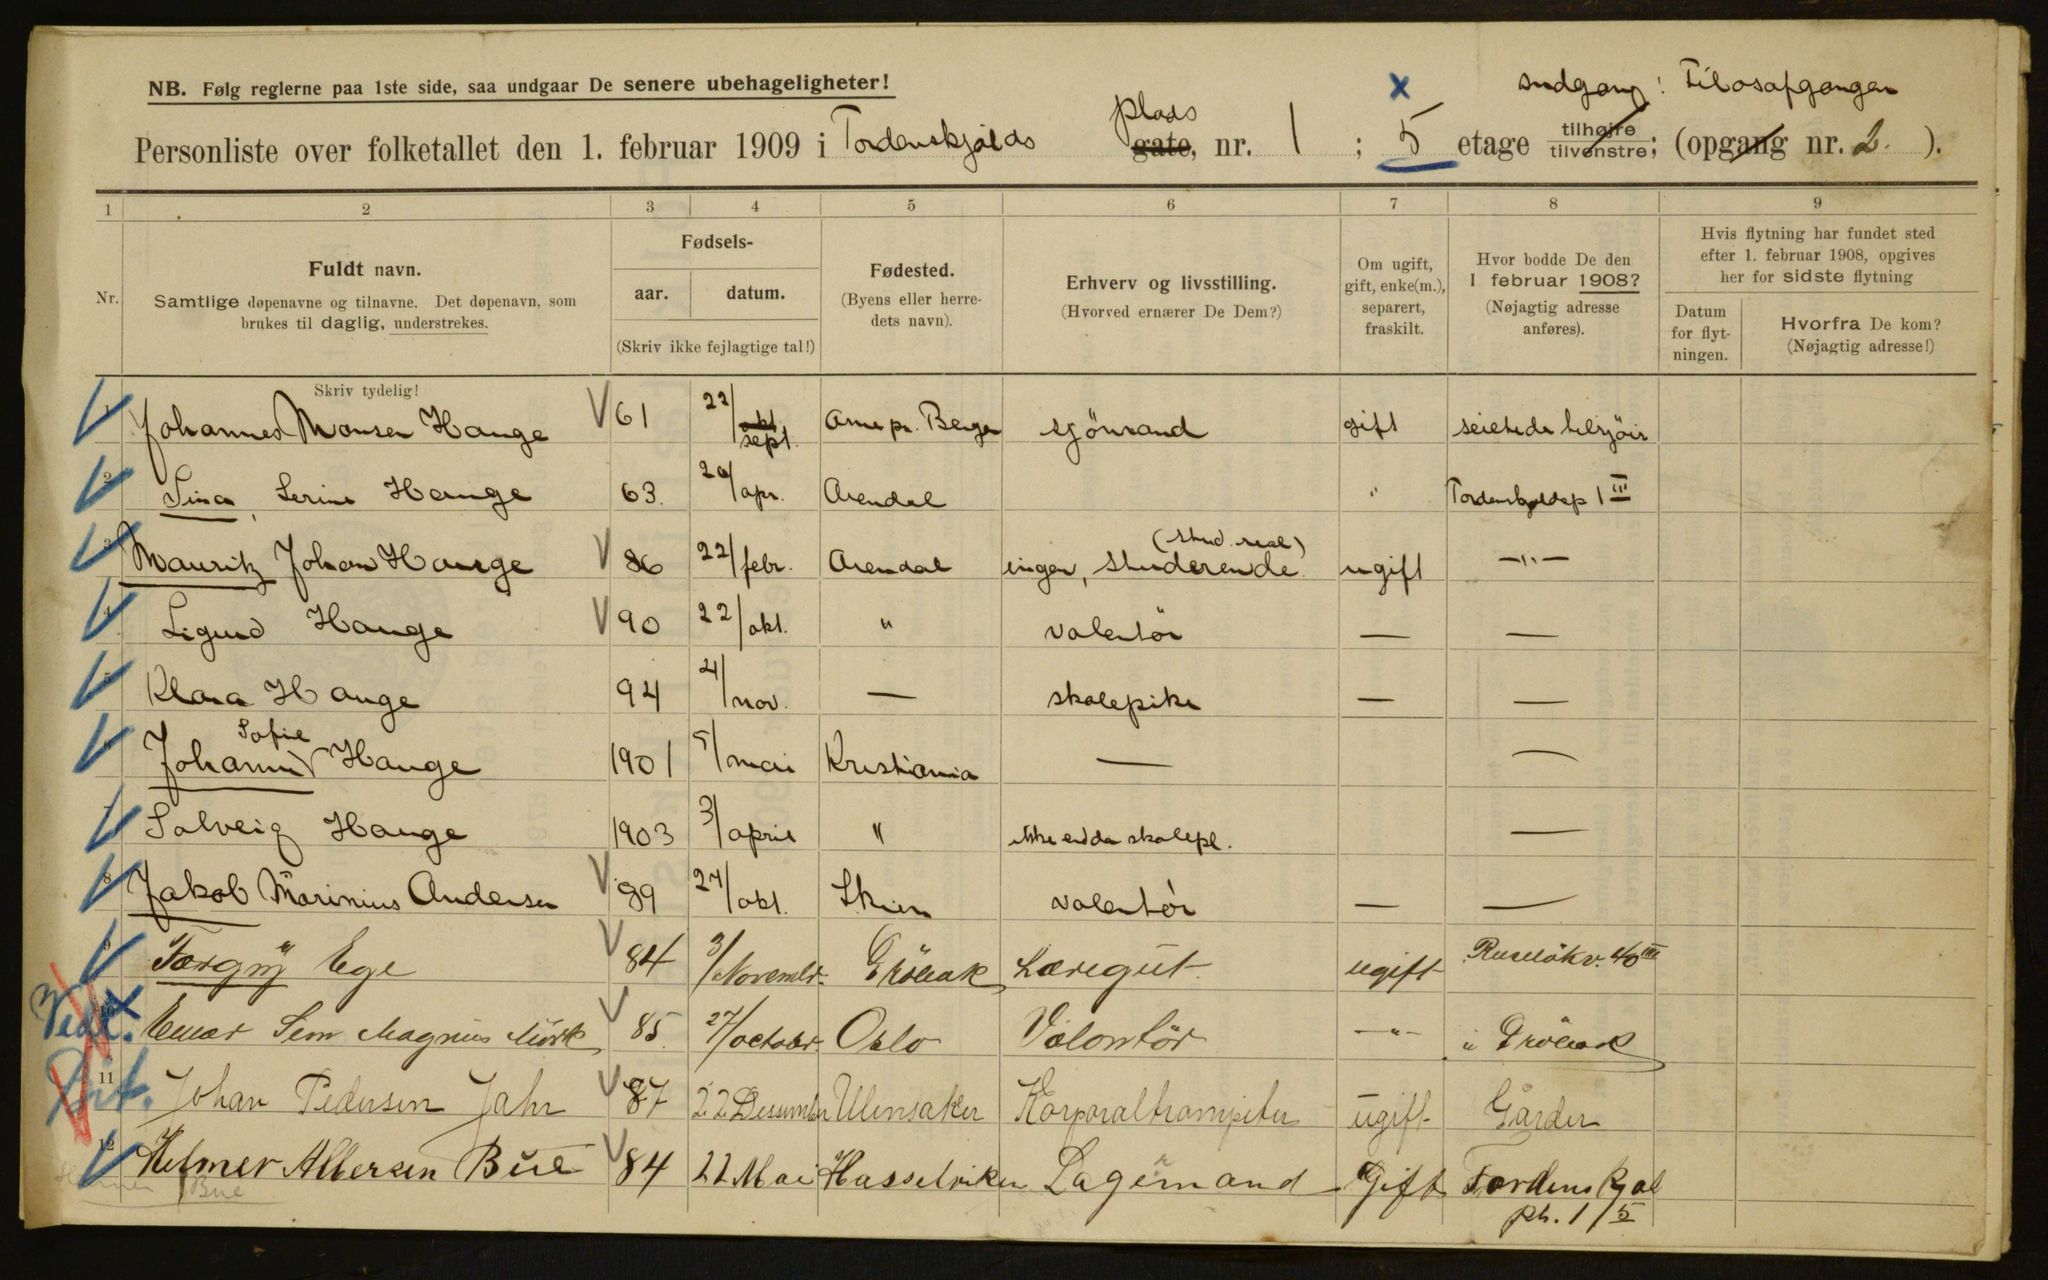 NB. Følg reglerne paa 1ste side, saa undgaar De senere ubehageligheter!
indgang: Filosofgangen
Personliste over folketallet den 1. februar 1909 i Tordenskjolds plads gate, nr. 1 ; 5 etage tilhøjre tilvenstre; (opgang nr. 2. ).
1 2 3 4 5 6 7 8 9
Nr.
Fuldt navn.
Samtlige døpenavne og tilnavne. Det døpenavn, som
brukes til daglig, understrekes.
Skriv tydelig!
Fødsels-
aar. datum.
(Skriv ikke fejlagtige tal!)
Fødested.
(Byens eller herre-
dets navn).
Erhverv og livsstilling.
(Hvorved ernærer De Dem?)
Om ugift,
gift, enke(m.),
separert,
fraskilt.
Hvor bodde De den
1 februar 1908?
(Nøjagtig adresse
anføres).
Hvis flytning har fundet sted
efter 1. februar 1908, opgives
her for sidste flytning
Datum
for flyt-
ningen.
Hvorfra De kom?
(Nøjagtig adresse!)
1 Johannes Monsen Hauge 61 22/okt. sept. Arne pr. Bergen sjömand gift
2 Sina, Serine Hauge 63. 20/apr. Arendal " Tordenskjoldsp 1 III
3 Mauritz Johan Hauge 86 22/febr. Arendal ingen, studerende (stud. real) ugift —"—
4 Sigurd Hauge 90 22/okt. " volentör — —
5 Klara Hauge 94 21/nov. — skolepike — —
6 Johanne Sofie Hauge 1901 5/mai Kristiania — —
7 Solveig Hauge 1903 3/april " ikke endda skolepl. —
8 Jakob Marinius Andersen 89 27/okt. Skien volentör — —
9 Torgny Ege 84 3/Novembr. Dröbak Læregut ugift Ruselökv. 40 III
10 Einar Sem Magnus Mørk 85 27/octobr. Oslo Volontör —"— i Dröbak
11 Johan Pedersen Jahr 87 22 Dessember Ulensaker Korporaltrompeter ugift Gårder
12 Helmer Albersen Bue 84 22 Mai Hasselviken Lagermand Gift Tordenskjol
pl. 1/5
Bue